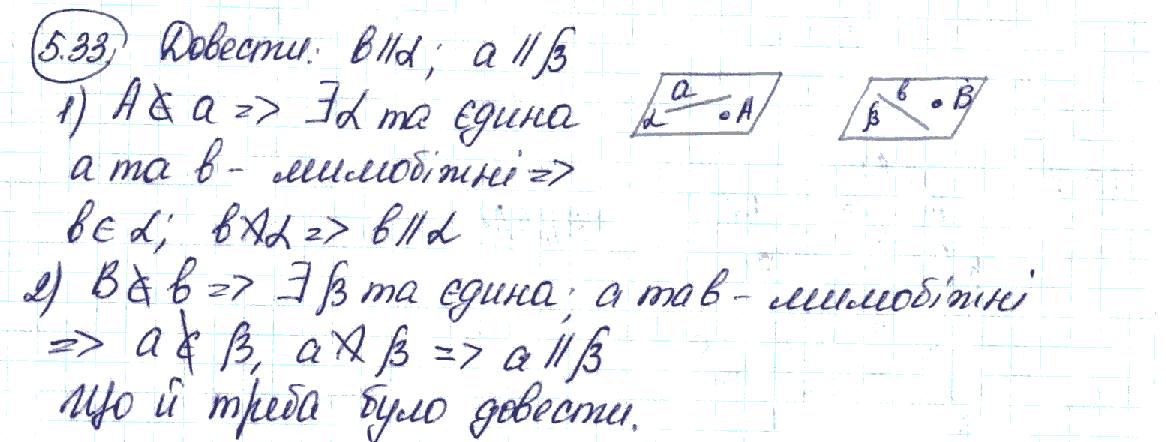 5.33, Довести: в||α; a||β
1) A ∉ a => ∃α та єдина
a α A
β в B
a та в - мимобіжні =>
в ∈ α; в ∦ α => в||α
2) B ∉ в => ∃ β та єдина; a та в - мимобіжні
=> a ⊄ β, a ∦ β => a||β
Що й треба було довести.